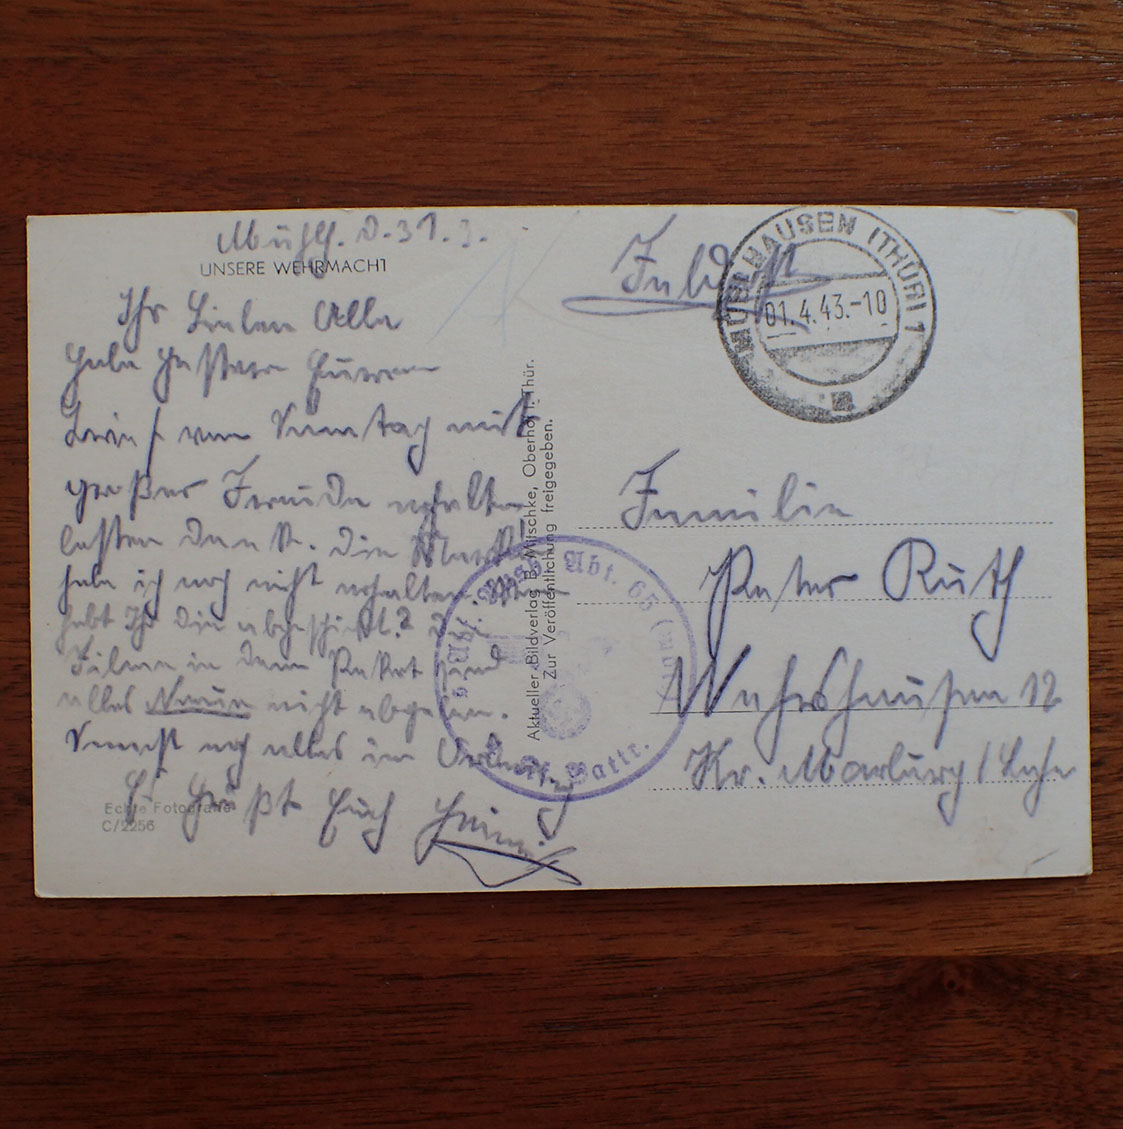 Mühlh. d. 31.3.
UNSERE WEHRMACHT
Ihr Lieben Alle
Habe gestern Euren
Brief vom Sonntag mit
großer Freude erhalten
besten Dank. Die
habe ich noch nicht erhalten. Wann
habt Ihr die abgeschickt? Die
Filme in dem Paket sind
alles Neue nicht abgelaufen.
Sonst noch alles im
Es grüßt Euch
Echte Fotografie
C/2256
Aktueller Bildverlag B. Mitschke, Oberhof i. Thür.
Zur Veröffentlichung freigegeben.
Feldpost
MÜHLHAUSEN (THÜR) 1
01.4.43.-10
a
Abt. 65 (mot)
Battr.
Familie
Peter Ruth
12
Kr. Marburg / Lahn